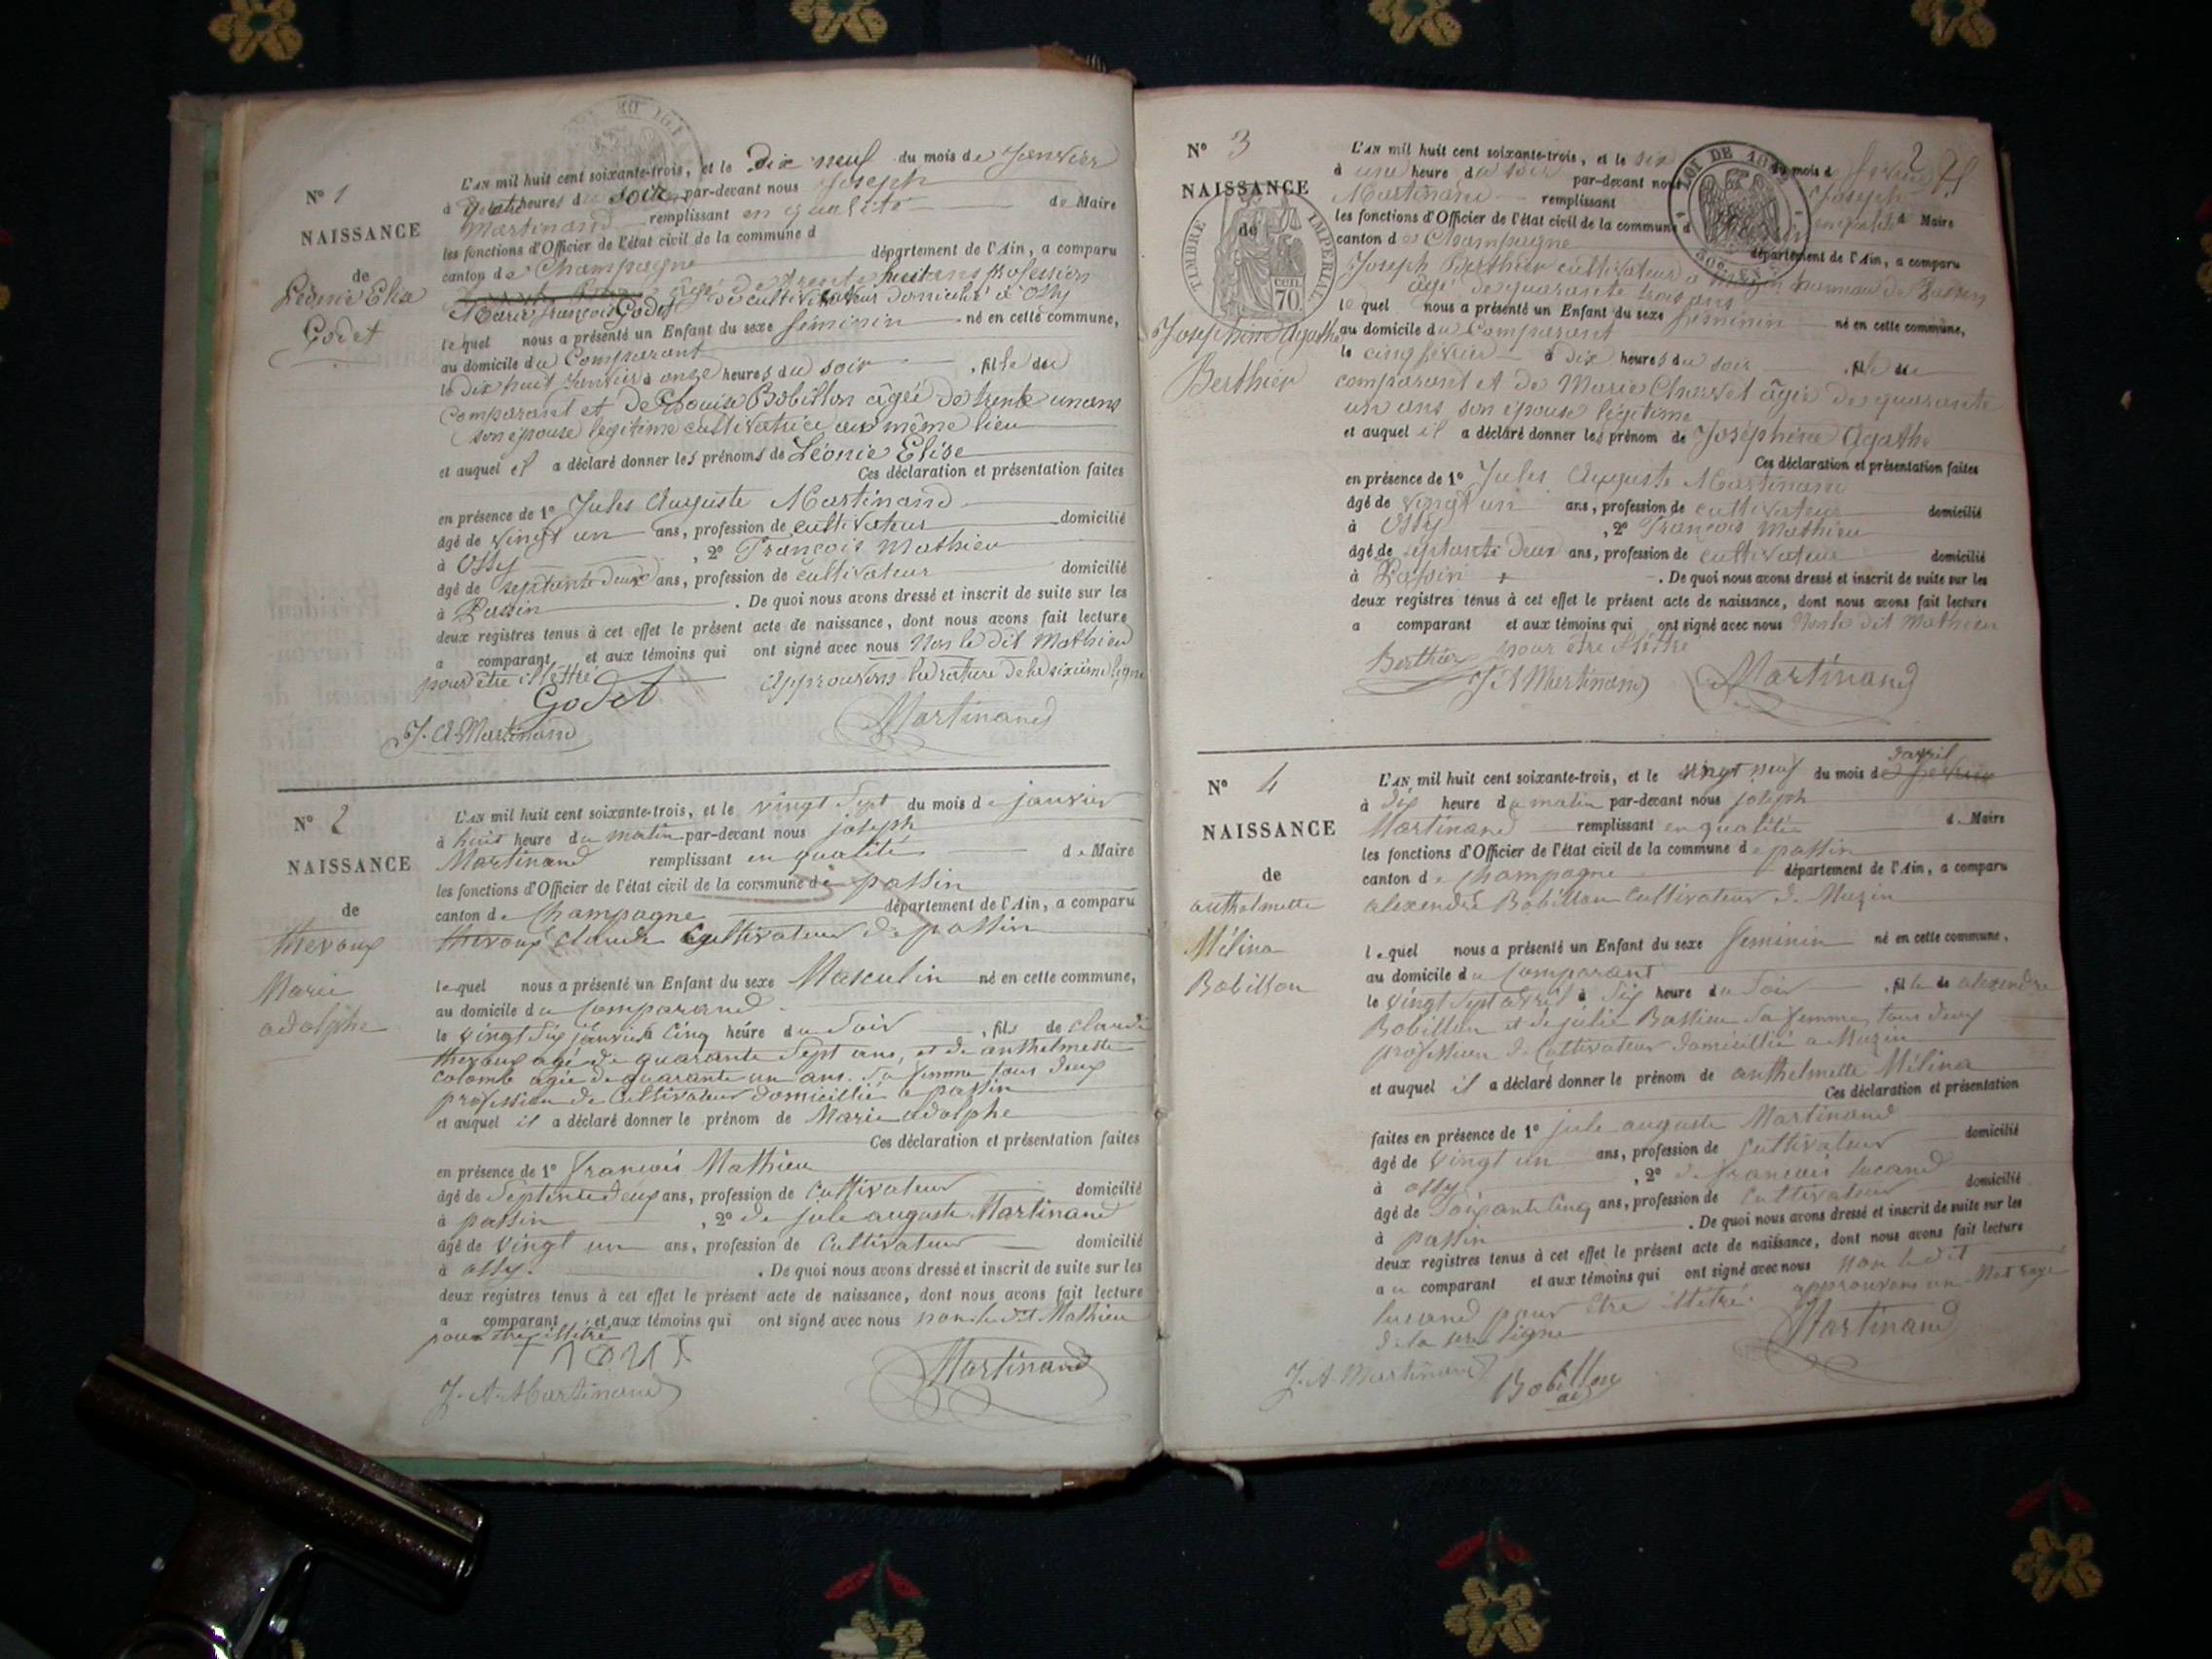 N° 1
NAISSANCE
de
Léonie Elise
Godet
L'AN mil huit cent soixante-trois, et le Dix neuf du mois de Janvier
à quatre heures du soir par-devant nous Joseph
Martinand remplissant en qualité de Maire
les fonctions d'Officier de l'état civil de la commune d
canton de Champagne département de l'Ain, a comparu
agé de trente huit ans profession
Marie françois Godet de cultivateur domicilié à Ossy
lequel nous a présenté un Enfant du sexe féminin né en cette commune,
au domicile du Comparant
le dix huit Janvier à onze heures du soir , fille du
comparant et de Louise Bobillon âgée de trente un ans
son épouse legitime cultivatrice au même lieu
et auquel il a déclaré donner les prénoms de Léonie Elise
Ces déclaration et présentation faites
en présence de 1° Jules Auguste Martinand
âgé de vingt un ans, profession de cultivateur domicilié
à Ossy , 2° François Mathieu
âgé de septante deux ans, profession de cultivateur domicilié
à Passin . De quoi nous avons dressé et inscrit de suite sur les
deux registres tenus à cet effet le présent acte de naissance, dont nous avons fait lecture
a comparant et aux témoins qui ont signé avec nous Non le dit Mathieu
pour être illettré approuvons la rature de la sixième ligne
Godet
J. A. Martinand Martinand
N° 2
NAISSANCE
de
theroux
Marie
adolphe
L'AN mil huit cent soixante-trois, et le vingt Sept du mois de janvier
à huit heure du matin par-devant nous joseph
Martinand remplissant en qualité de Maire
les fonctions d'Officier de l'état civil de la commune de passin
canton de Champagne département de l'Ain, a comparu
theroux claude Cultivateur de passin
lequel nous a présenté un Enfant du sexe Masculin né en cette commune,
au domicile du Comparand
le vingt Six janvier à Cinq heure du Soir , fils de claude
theroux agé de quarante Sept ans, et de anthelmette
Colomb agée de quarante un ans. Sa femme tous deux
profession de Cultivateur domicillié a passin
et auquel il a déclaré donner le prénom de Marie adolphe
Ces déclaration et présentation faites
en présence de 1° françois Mathieu
âgé de Septente deux ans, profession de Cultivateur domicilié
à passin , 2° de jule auguste Martinand
âgé de vingt un ans, profession de Cultivateur domicilié
à ossy. . De quoi nous avons dressé et inscrit de suite sur les
deux registres tenus à cet effet le présent acte de naissance, dont nous avons fait lecture
a comparant et aux témoins qui ont signé avec nous non le dit Mathieu
pour etre illetré
J. A. Martinand Martinand
N° 3
NAISSANCE
de
TIMBRE IMPERIAL
CEN 70
Josephine Agathe
Berthier
2
LOI DE 18
50c. EN S
L'AN mil huit cent soixante-trois, et le six du mois d février
à une heure du soir par-devant nous Joseph
Martinand remplissant en qualité d Maire
les fonctions d'Officier de l'état civil de la commune d
canton de Champagne département de l'Ain, a comparu
Joseph Berthier cultivateur a Muzin hameau de Passin
âgé de quarante trois ans
lequel nous a présenté un Enfant du sexe féminin né en cette commune,
au domicile du Comparant
le cinq février à dix heures du soir , fille du
comparant et de Marie Charvet âgée de quarante
un ans son épouse légitime
et auquel il a déclaré donner les prénom de Joséphine Agathe
Ces déclaration et présentation faites
en présence de 1° Jules Auguste Martinand
âgé de vingt un ans, profession de cultivateur domicilié
à Ossy , 2° François Mathieu
âgé de septante deux ans, profession de cultivateur domicilié
à Passin . De quoi nous avons dressé et inscrit de suite sur les
deux registres tenus à cet effet le présent acte de naissance, dont nous avons fait lecture
a comparant et aux témoins qui ont signé avec nous Non le dit Mathieu
pour être illettré
Berthier J A Martinand Martinand
N° 4
NAISSANCE
de
anthelmette
Mélina
Bobillon
d'avril
L'AN mil huit cent soixante-trois, et le vingt neuf du mois de fevrier
à dix heure du matin par-devant nous joseph
Martinand remplissant en qualitée de Maire
les fonctions d'Officier de l'état civil de la commune de passin
canton de Champagne département de l'Ain, a comparu
alexendre Bobillon Cultivateur de Muzin
lequel nous a présenté un Enfant du sexe feminin né en cette commune,
au domicile du Comparant
le vingt Sept avril à Six heure du Soir , fille de alexendre
Bobillon et de julie Bassieu Sa femme, tous deux
profession de Cultivateur domicillié a Muzin
et auquel il a déclaré donner le prénom de anthelmette Mélina
Ces déclaration et présentation
faites en présence de 1° jule auguste Martinand
âgé de vingt un ans, profession de Cultivateur domicilié
à ossy , 2° de françois lucand
âgé de Soixante Cinq ans, profession de Cultivateur domicilié
à passin . De quoi nous avons dressé et inscrit de suite sur les
deux registres tenus à cet effet le présent acte de naissance, dont nous avons fait lecture
au comparant et aux témoins qui ont signé avec nous non le dit
lucand pour être illetré. approuvons un Mot rayé
de la 1ere ligne
J. A. Martinand Bobillon Martinand